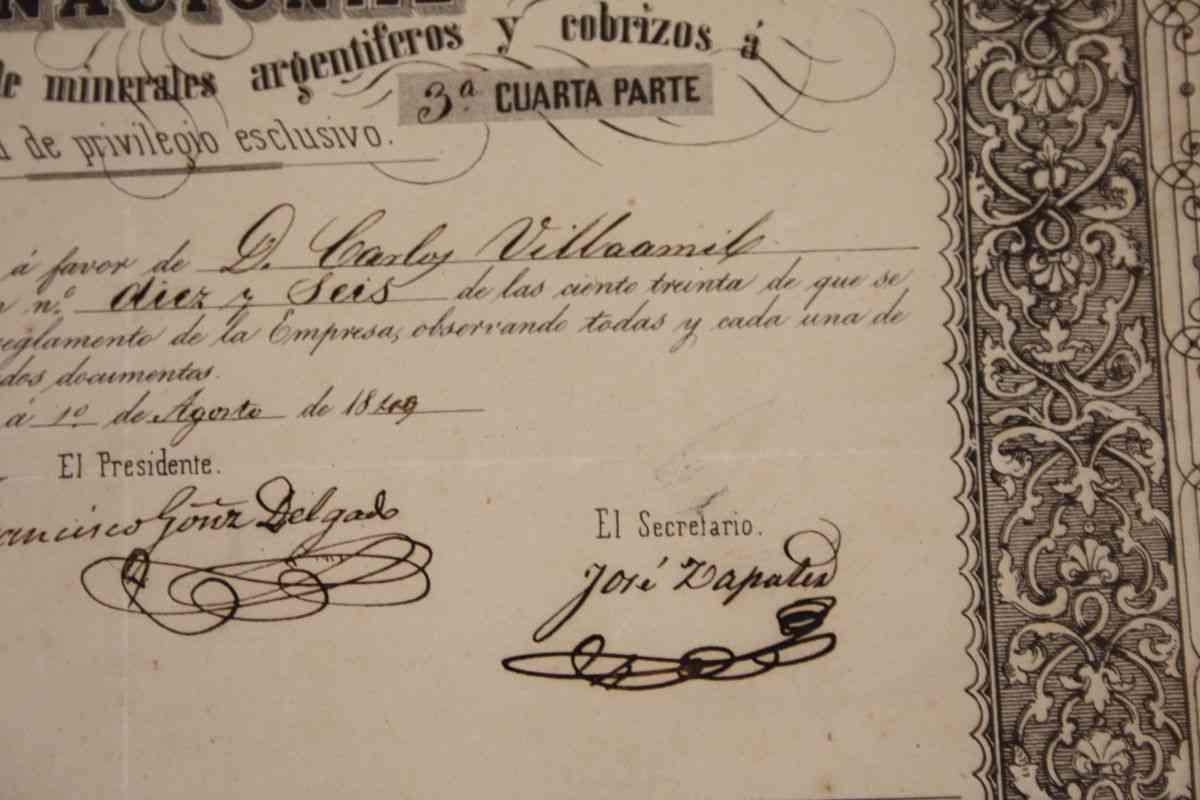 NACIONAL
de minerales argentiferos y cobrizos á
3ª CUARTA PARTE
de privilegio esclusivo.
á favor de D. Carlos Villaamil
n.º diez y Seis de las ciento treinta de que se
reglamento de la Empresa, observando todas y cada una de
documentos.
á 1º de Agosto de 18
El Presidente.
Francisco Gonz Delgado
El Secretario.
José Zapater